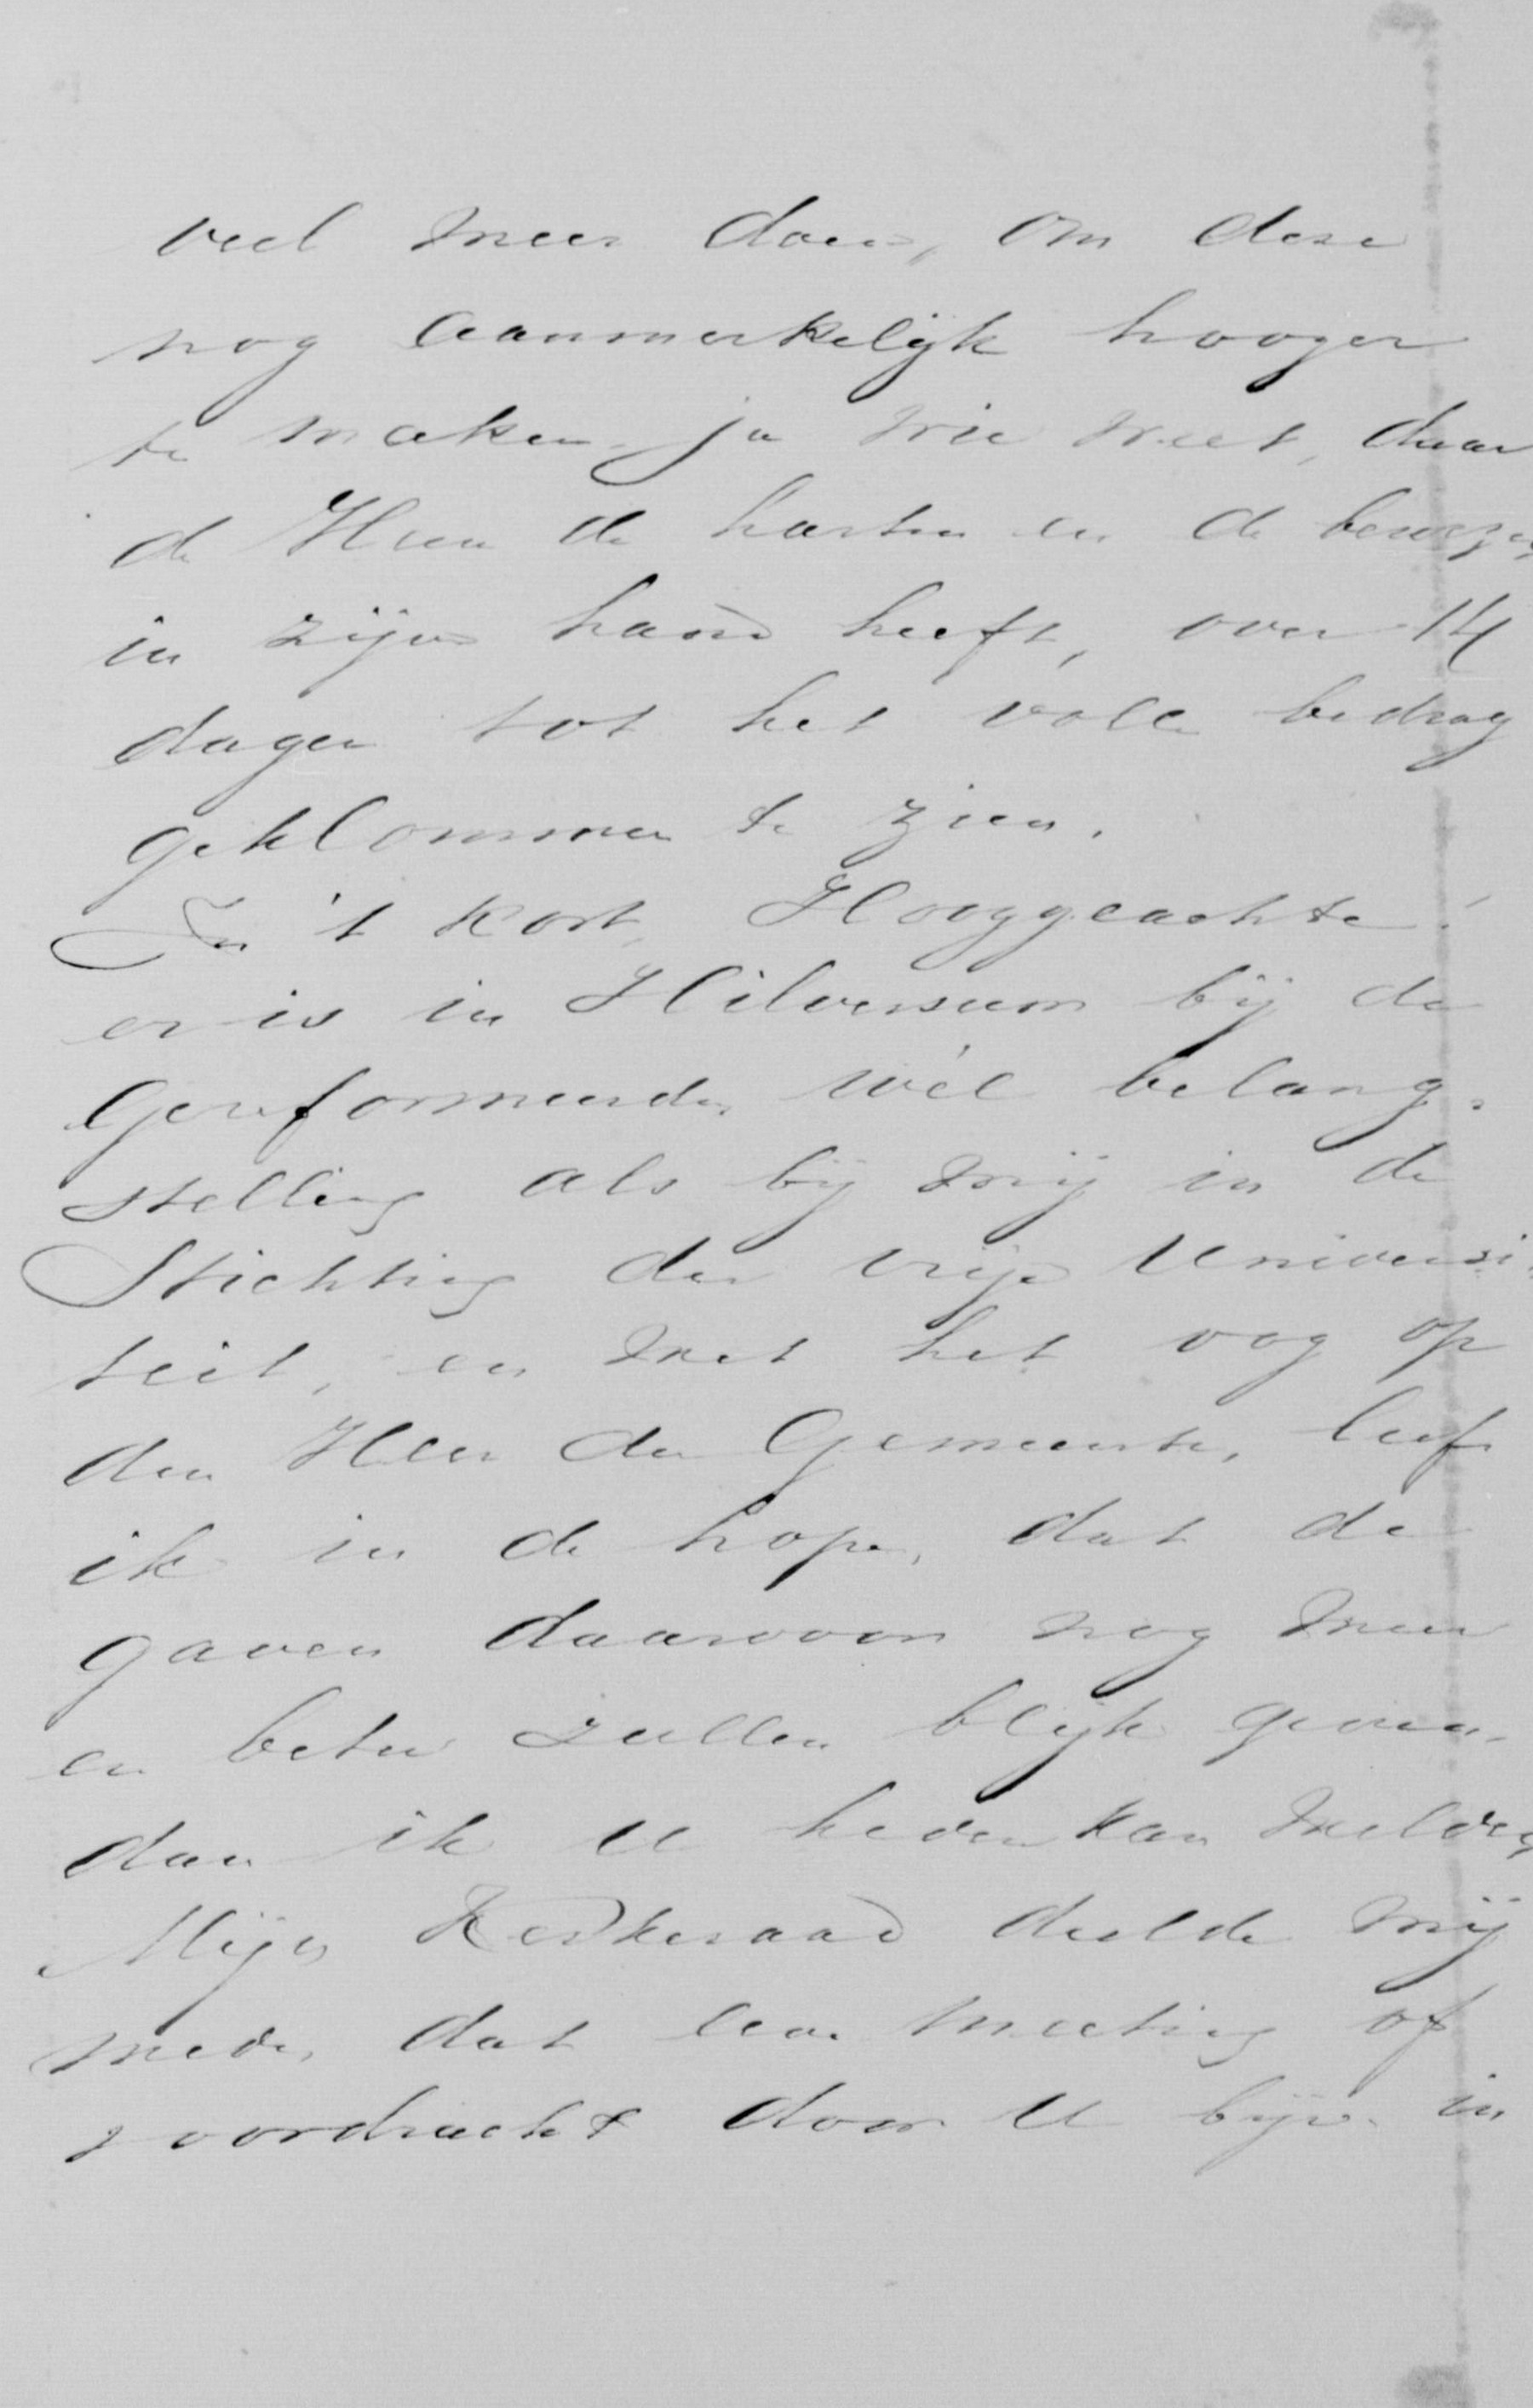 veel meer doen, om deze
nog aanmerkelijk hooger
te maken, ja wie weet, daar
de Heer de harten en de beurzen
in zijn hand heeft, over 14
dagen tot het volle bedrag
geklommen te zien.
In 't kort, Hooggeachte!
er is in Hilversum bij de
Gereformeerden wèl belang-
stelling als bij mij in de
Stichting der vrije Universi-
teit, en met het oog op
den Heer der Gemeente, leef
ik in de hope, dat de
gaven daarvoor nog meer
en beter zullen blijk geven,
dan ik U heden kan melden
Mijn Kerkeraad deelde mij
mede, dat een meeting of
voordracht door U bijv. in